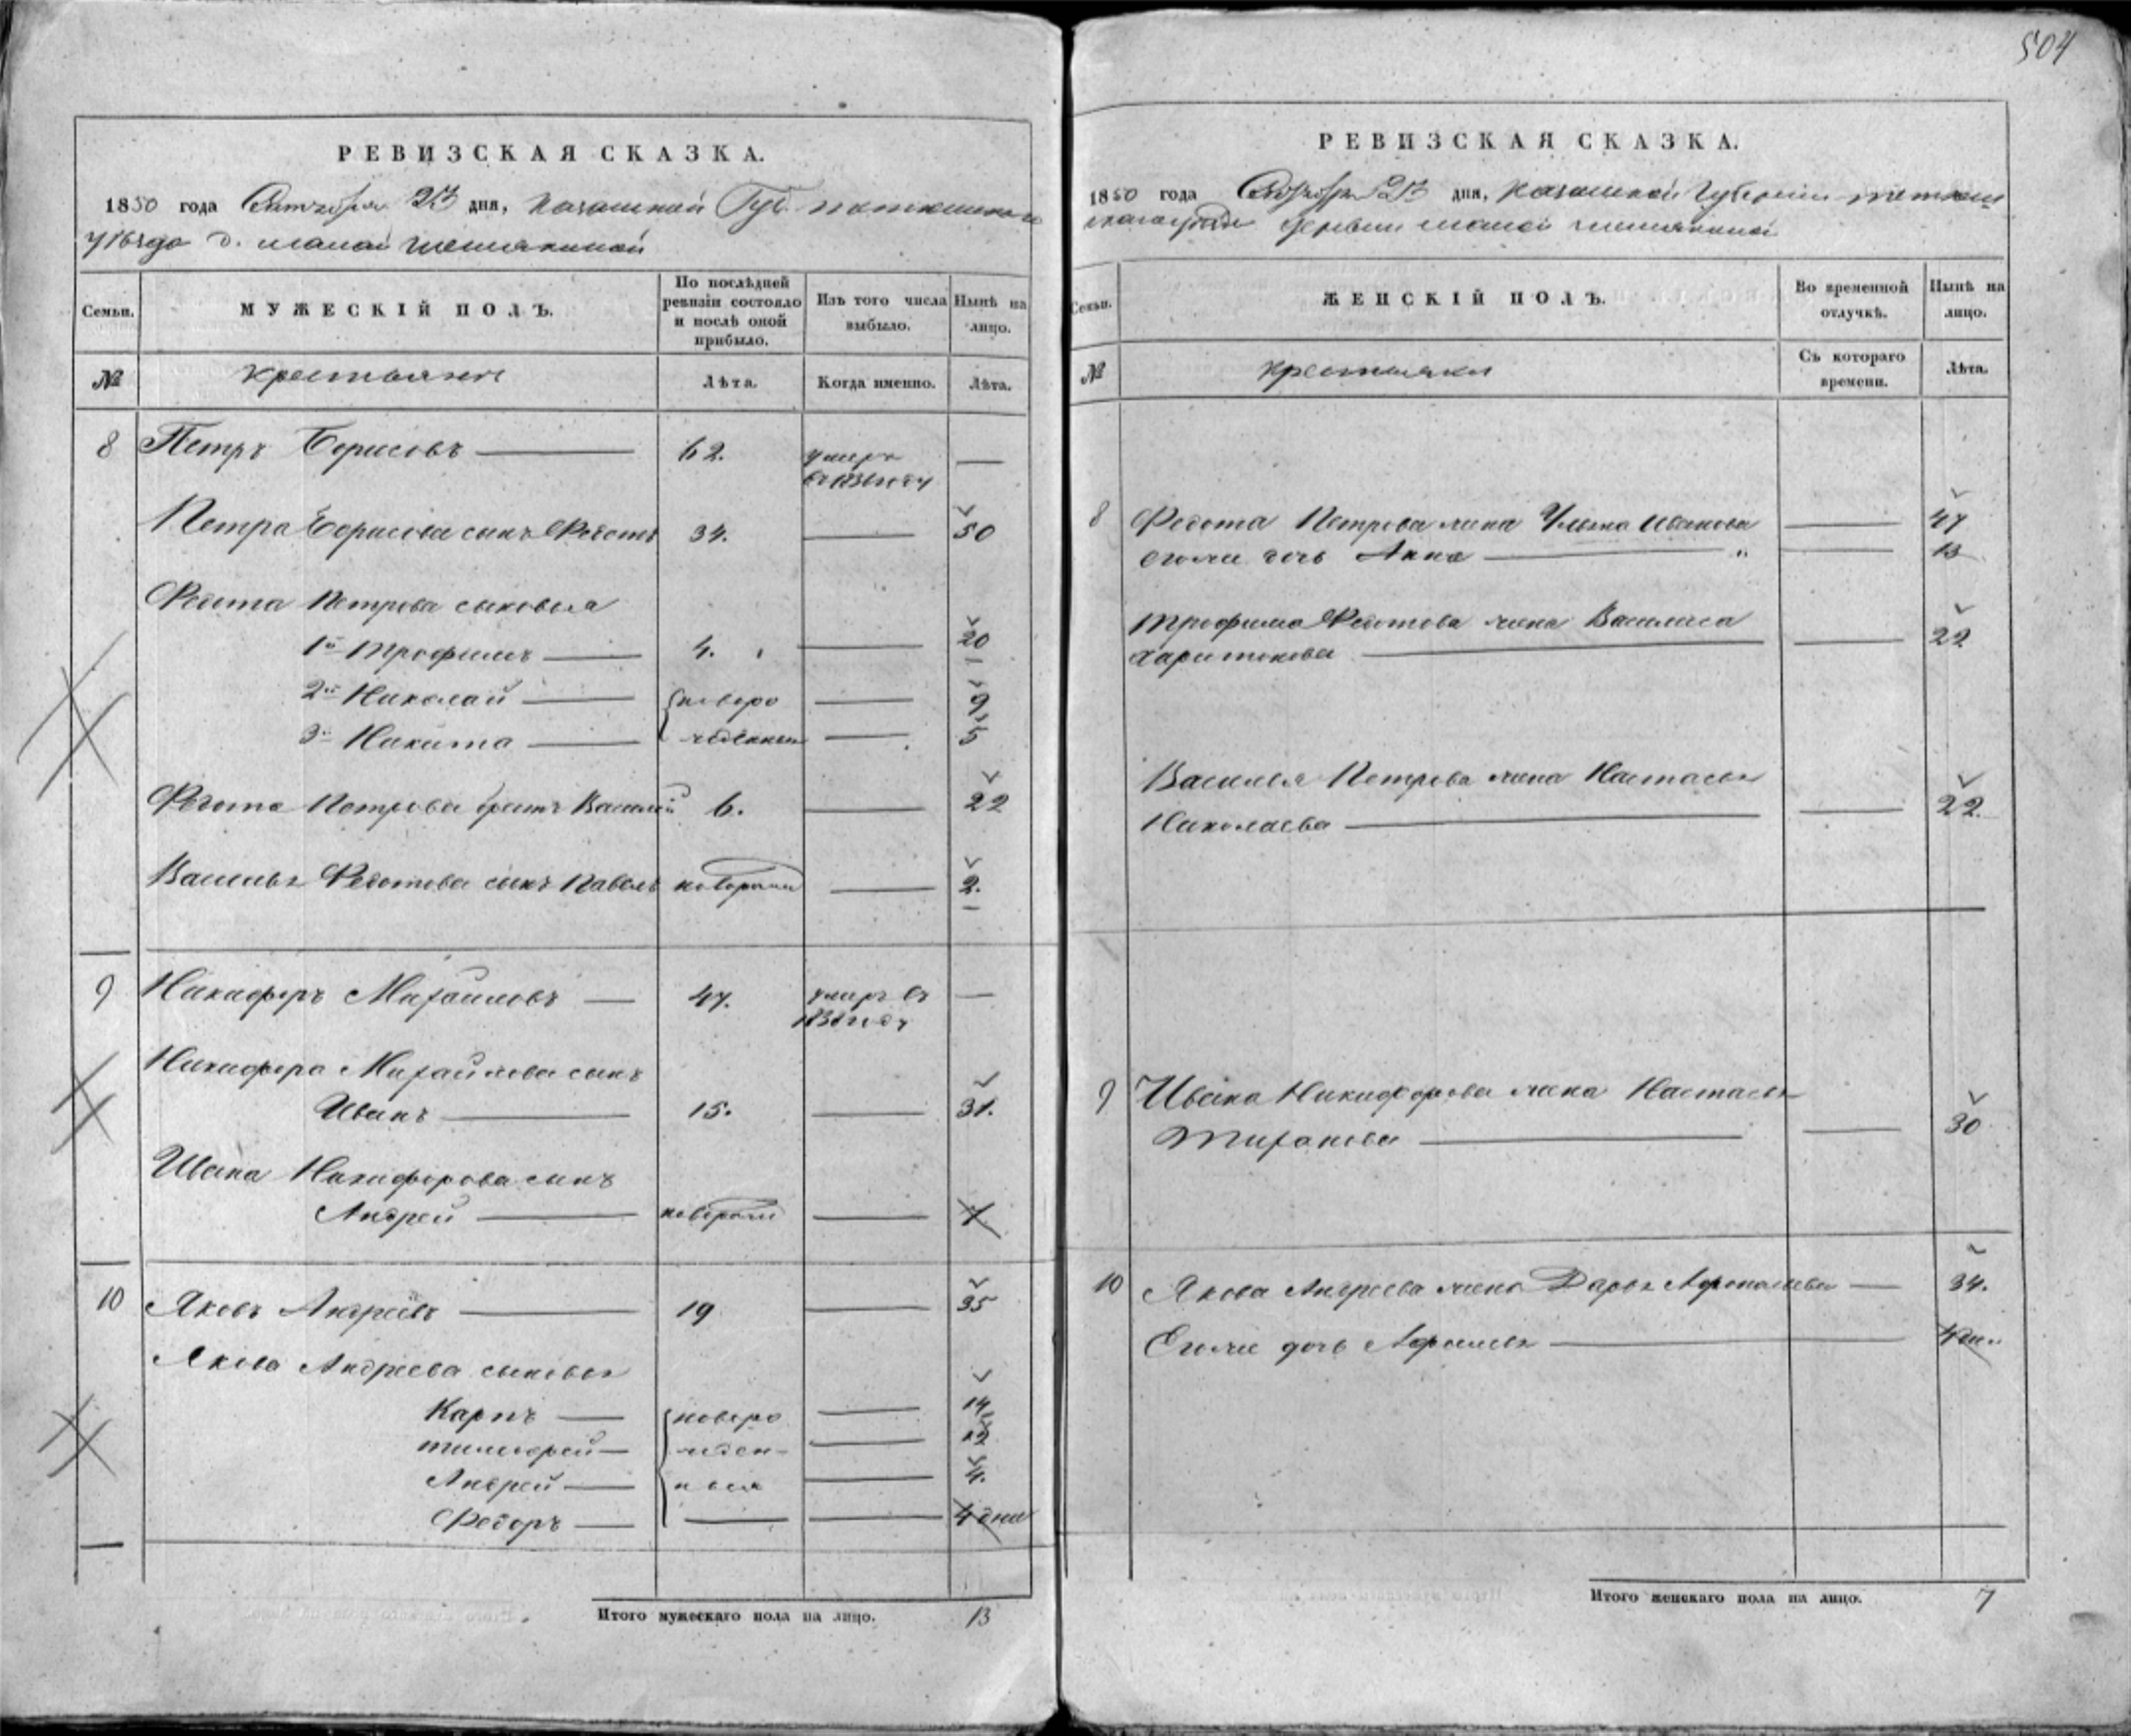 504
РЕВИЗСКАЯ СКАЗКА.
1850 года Октября 23 дня, Казанской Губ. Тетюшскаго
уѣзда д. малой шемякиной
Семьи.
МУЖЕСКІЙ ПОЛЪ.
По послѣдней ревизіи состояло и послѣ оной прибыло.
Изъ того числа выбыло.
Нынѣ на лицо.
№
крестьяне
Лѣта.
Когда именно.
Лѣта.
8 Петръ Борисовъ — 62. умеръ —
въ 1836 году
Петра Борисова сынъ Федотъ 34. — 50
Федота Петрова сыновья
1й Трофимъ — 4. — 20
2й Николай — новоро — 9
3й Никита — жденные — 5
Федота Петрова братъ Василій 6. — 22
Василья Федотова сынъ Павелъ новорожд — 2.
9 Никифоръ Михайловъ — 47. умеръ въ —
1838 году
Никифора Михайлова сынъ
Иванъ — 15. — 31.
Ивана Никифорова сынъ
Андрей — новорожд — 1
10 Яковъ Андреевъ — 19 — 35
Якова Андреева сыновья
Карпъ — новоро — 14
тимофей — жден- — 12
Андрей — ныя — 4.
Федоръ — — — 4 дни
Итого мужескаго пола на лицо. 13
РЕВИЗСКАЯ СКАЗКА.
1850 года Октября 23 дня, Казанской Губерніи тетюш
скаго уѣзда деревни малой шемякиной
Семьи.
ЖЕНСКІЙ ПОЛЪ.
Во временной отлучкѣ.
Нынѣ на лицо.
№
крестьянки
Съ котораго времени.
Лѣта.
8 Федота Петрова жена Ульяна Иванова — 47
его же дочь Анна — „ — 13
Трофима Федотова жена Василиса
Харитонова — — 22
Василья Петрова жена Настасья
Николаева — — 22.
9 Ивана Никифорова жена Настасья
Тиханова — — 30
10 Якова Андреева жена Дарья Афонасьева — 34.
Его же дочь Афимья — 4 дн.
Итого женскаго пола на лицо. 7